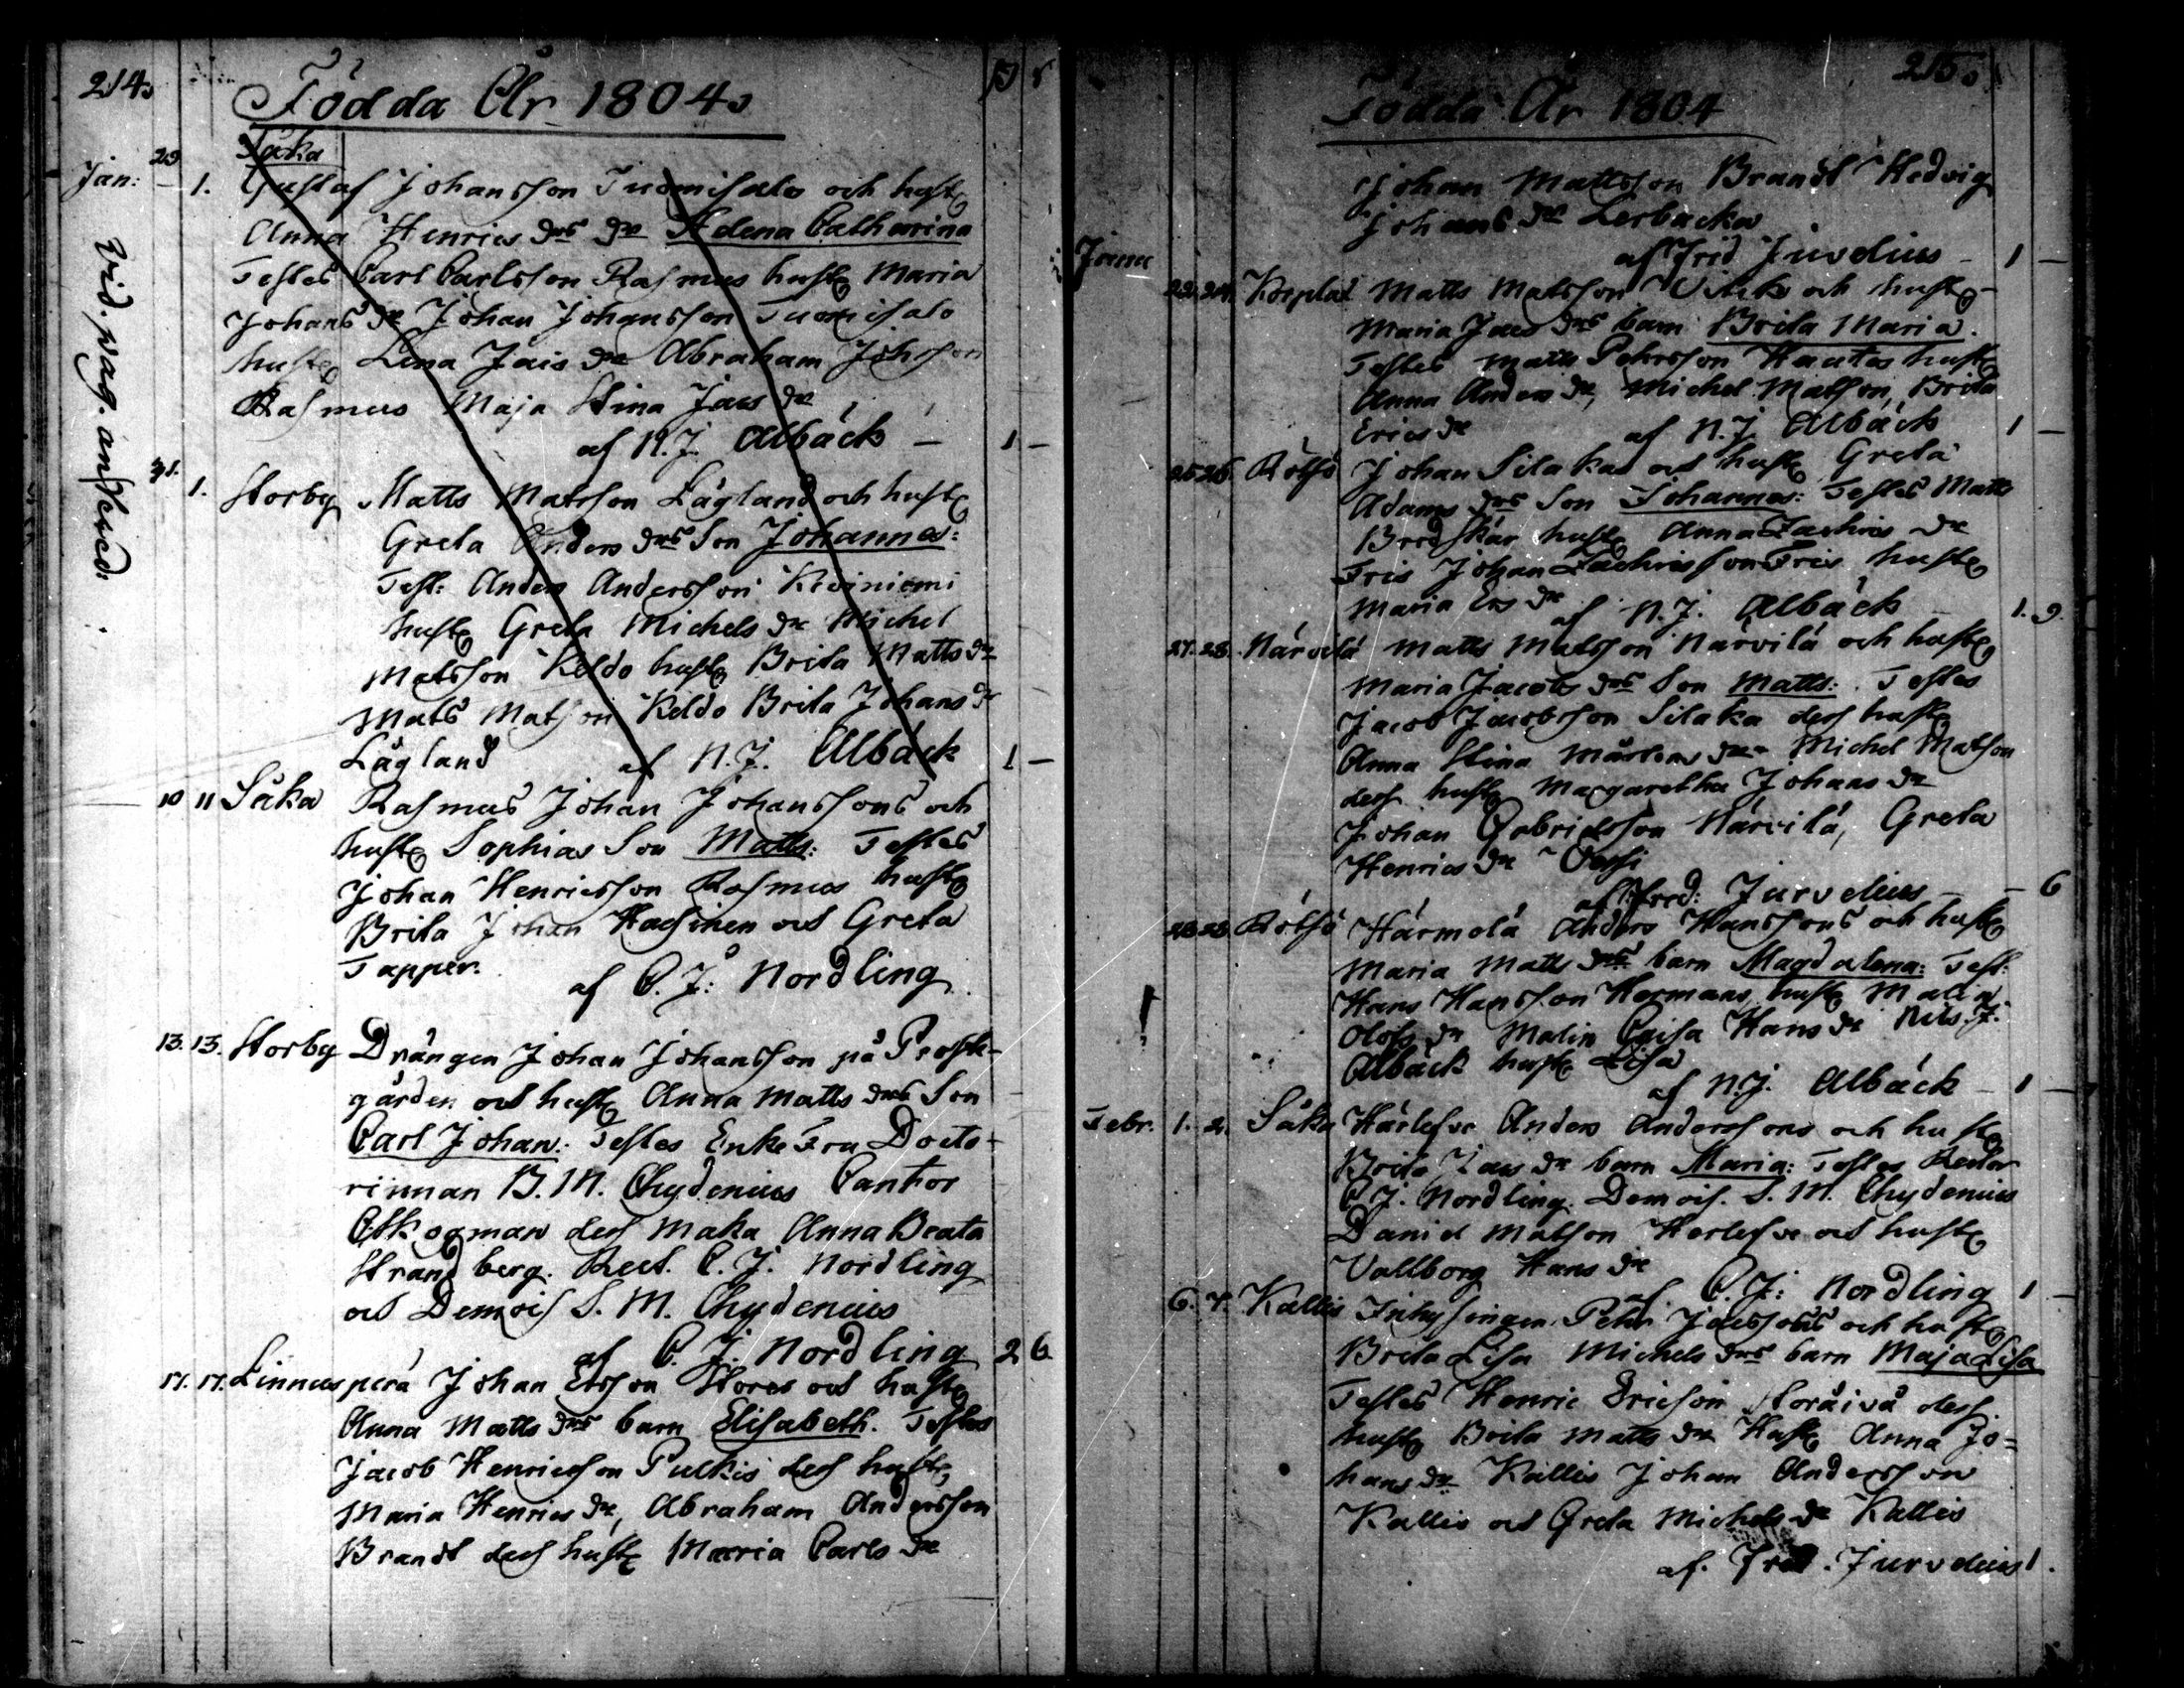 214.
Födda År 1804.
Såka
Jan: 29 1. Gustaf Johansson Tuomisalo och hust
Anna Henrics drs dr Helena Catharina
Testes Carl Carlsson Rasmus hust Maria
Johans dr Johan Johansson Tuomisalo
hust Lena Jacs dr Abraham Johsson
Rasmus Maja Stina Jacs dr
af N.J. Albäck — 1 —
Vid. pag. anteced:
31. 1. Storby Matts Matsson Lågland och hust
Greta Anders drs Son Johannes:
Test: Anders Andersson Kiviniemi
hust Greta Michels dr Michel
Matsson Keldo hust Brita Matts dr
Mats Matson Keldo Brita Johans dr
Lågland af N.J. Albäck 1 —
10 11 Såka Rasmus Johan Johanssons och
hust Sophias Son Matts: Testes
Johan Henricsson Rasmus hust
Brita Johan Hassinen och Greta
Tapper.
af C.J: Nordling
13. 13. Storby Drängen Johan Johansson på Prost-
gården och hust Anna Matts drs Son
Carl Johan: Testes Enke Fru Docto-
rinnan B.M. Chydenius Cantor
Estkogman dess Maka Anna Beata
Strandberg. Rect. C.J. Nordling
och Demois S.M. Chydenius
af C.J. Nordling 2 6
17. 17. Linnusperä Johan Ersson Stores och hust
Anna Matts drs barn Elisabeth. Testes
Jacob Henricsson Pulkis dess hust
Maria Henrics dr, Abraham Andersson
Brandt dess hust Maria Carls dr
215.
Födda År 1804
Johan Mattsson Brandt Hedvig
Johans dr Lerbacka
af Frid Jurvelius — 1 —
Janu
22. 24. Korplax Matts Matsson Witick och hust
Maria Jacs drs barn Brita Maria.
Testes Matts Pehrsson Hautas hust
Anna Anders dr, Michel Matson, Brita
Erics dr af N.J. Albäck 1 —
25 26. Rötsö Johan Silakas och hust Greta
Adams drs Son Johannes: Testes Matts
Bredskär hust Anna Zachris dr
Fris Johan Zachrisson Fris hust
Maria Ers dr af N.J. Albäck 1. 9.
27. 28. Närvilä Matts Matsson Närvilä och hust
Maria Jacobs drs Son Matts: Testes
Jacob Jacobsson Silaka dess hust
Anna Stina Mårtens dr Michel Matson
dess hust Margaretha Johans dr
Johan Gabrielsson Närvilä, Greta
Henrics dr
af Fred: Jurvelius — — 6
28 28 Rötsö Härmälä Anders Hanssons och hust
Maria Matts drs barn Magdalena: Test:
Hans Hansson Hermans hust Malin
Olofs dr Malin Caisa Hans dr Nils J.
Albäck hust Lisa
af N.J. Albäck — 1 —
Febr. 1. 2. Såka Härlefve Anders Anderssons och hust
Brita Jacs dr barn Maria: Testes Rector
C.J. Nordling. Demois. S.M. Chydenius
Daniel Matson Herlefve och hust
Vallborg Hans dr
af C.J: Nordling 1 —
6. 7. Kallis Inhysingen Pehr Jacssons och hust
Brita Lisa Michels drs barn Maja Lisa
Testes Henric Ericson Storäivä dess
hust Brita Matts dr Hust Anna Jo=
hans dr Kallis Johan Andersson
Kallis och Greta Michels dr Kallis
af. Fred. Jurvelius 1.